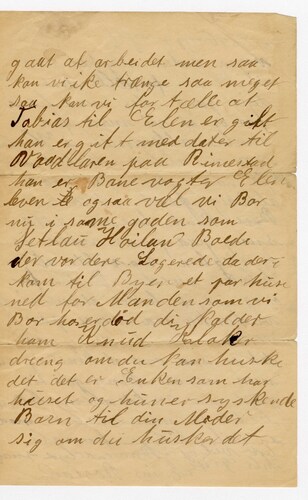 gaat at arbeidet men saa
kan vi ike trænge saa meget
saa kan vi fortælle at
Tobias til Elen er gift
han er gift med dater til
paa Rinestad
han er Bane vogter Elen
lever og saa vel vi Bor
nu i same gaden som
Hoilan Boede
der vor dere Logerede da der
kom til Byen et par huse
ned for Manden som vi
Bor hos er død di kalder
ham Knud
dreng om du kan huske
det det er Enken som har
huset og hun er syskende
Barn til din Moder
sig om du husker det